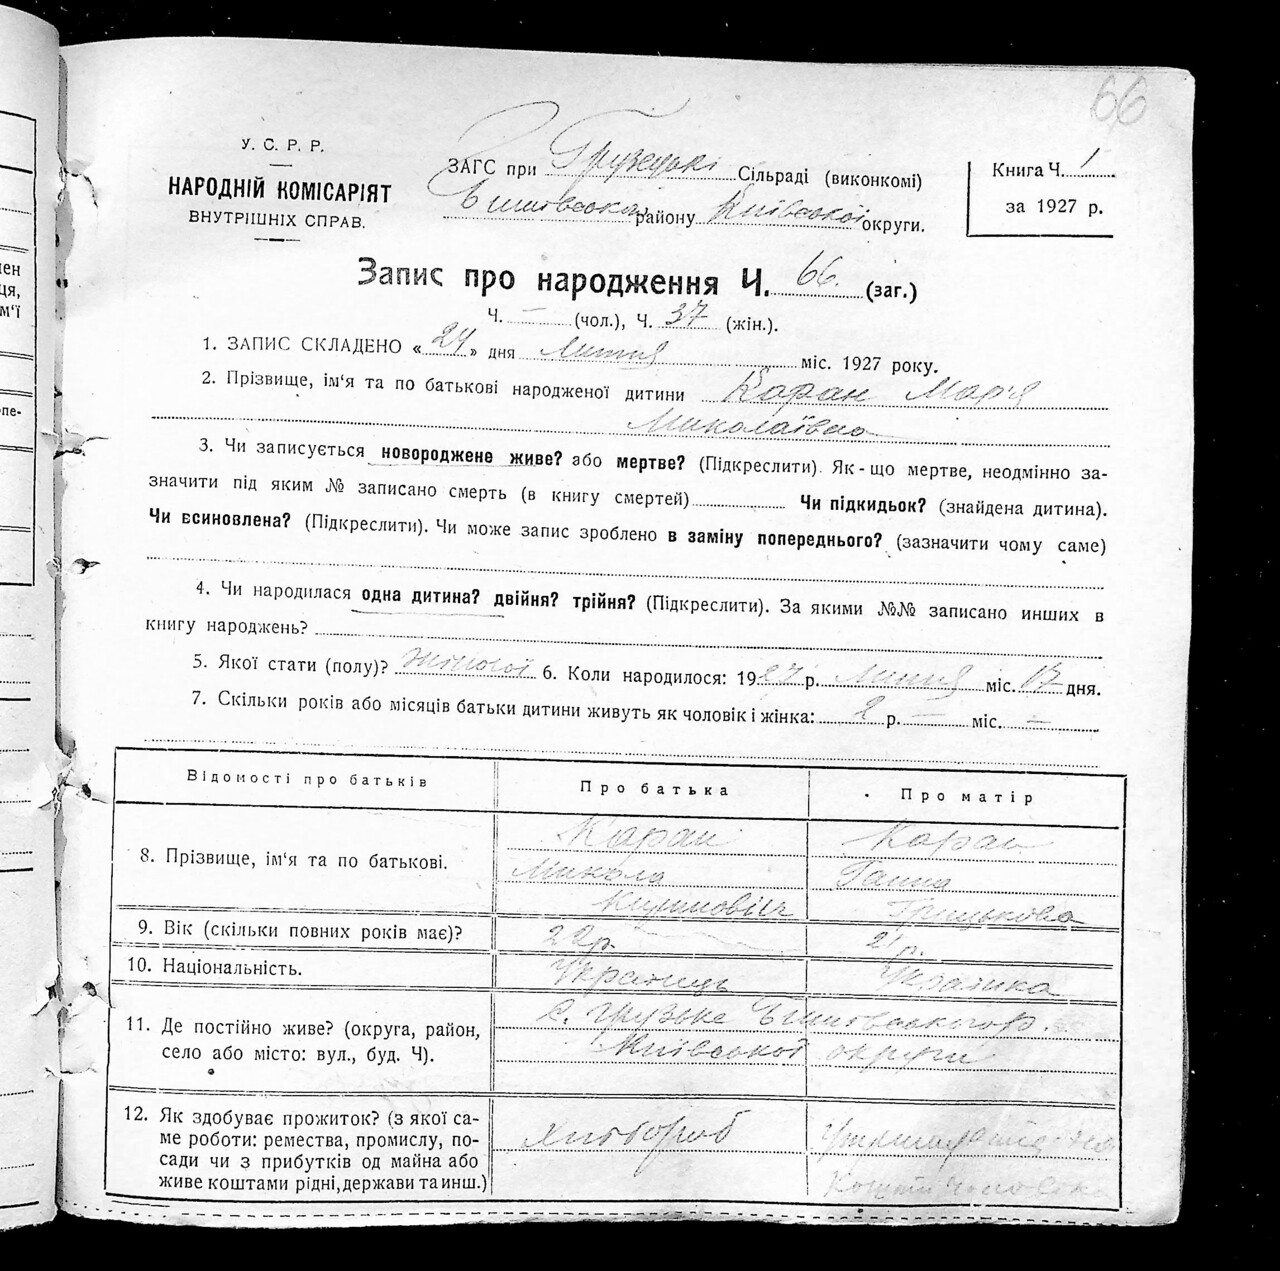 66
У. С. Р. Р.
НАРОДНІЙ КОМІСАРІЯТ
ВНУТРІШНІХ СПРАВ.
ЗАГС при Грузецькі Сільраді (виконкомі)
району Київської округи.
Книга Ч. 1
за 1927 р.
Запис про народження Ч. 66. (заг.)
Ч. — (чол.), Ч. 37 (жін.).
1. ЗАПИС СКЛАДЕНО « 24 » дня Липня міс. 1927 року.
2. Прізвище, ім'я та по батькові народженої дитини Каран Мар'я
Миколаївна
3. Чи записується новороджене живе? або мертве? (Підкреслити). Як-що мертве, неодмінно за-
значити під яким № записано смерть (в книгу смертей) Чи підкидьок? (знайдена дитина).
Чи всиновлена? (Підкреслити). Чи може запис зроблено в заміну попереднього? (зазначити чому саме)
4. Чи народилася одна дитина? двійня? трійня? (Підкреслити). За якими №№ записано инших в
книгу народжень?
5. Якої стати (полу)? жіночої 6. Коли народилося: 1927 р. Липня міс. 17 дня.
7. Скільки років або місяців батьки дитини живуть як чоловік і жінка: 2 р. — міс. —
Відомості про батьків
Про батька
Про матір
8. Прізвище, ім'я та по батькові.
Каран
Микола
Каран
Ганна
Грицькова
9. Вік (скільки повних років має)?
22 р.
21 р.
10. Національність.
Українець
Українка
11. Де постійно живе? (округа, район,
село або місто: вул., буд. Ч).
с. Грузьке
Київської округи
12. Як здобуває прожиток? (з якої са-
ме роботи: ремества, промислу, по-
сади чи з прибутків од майна або
живе коштами рідні, держави та инш.)
Хлібороб